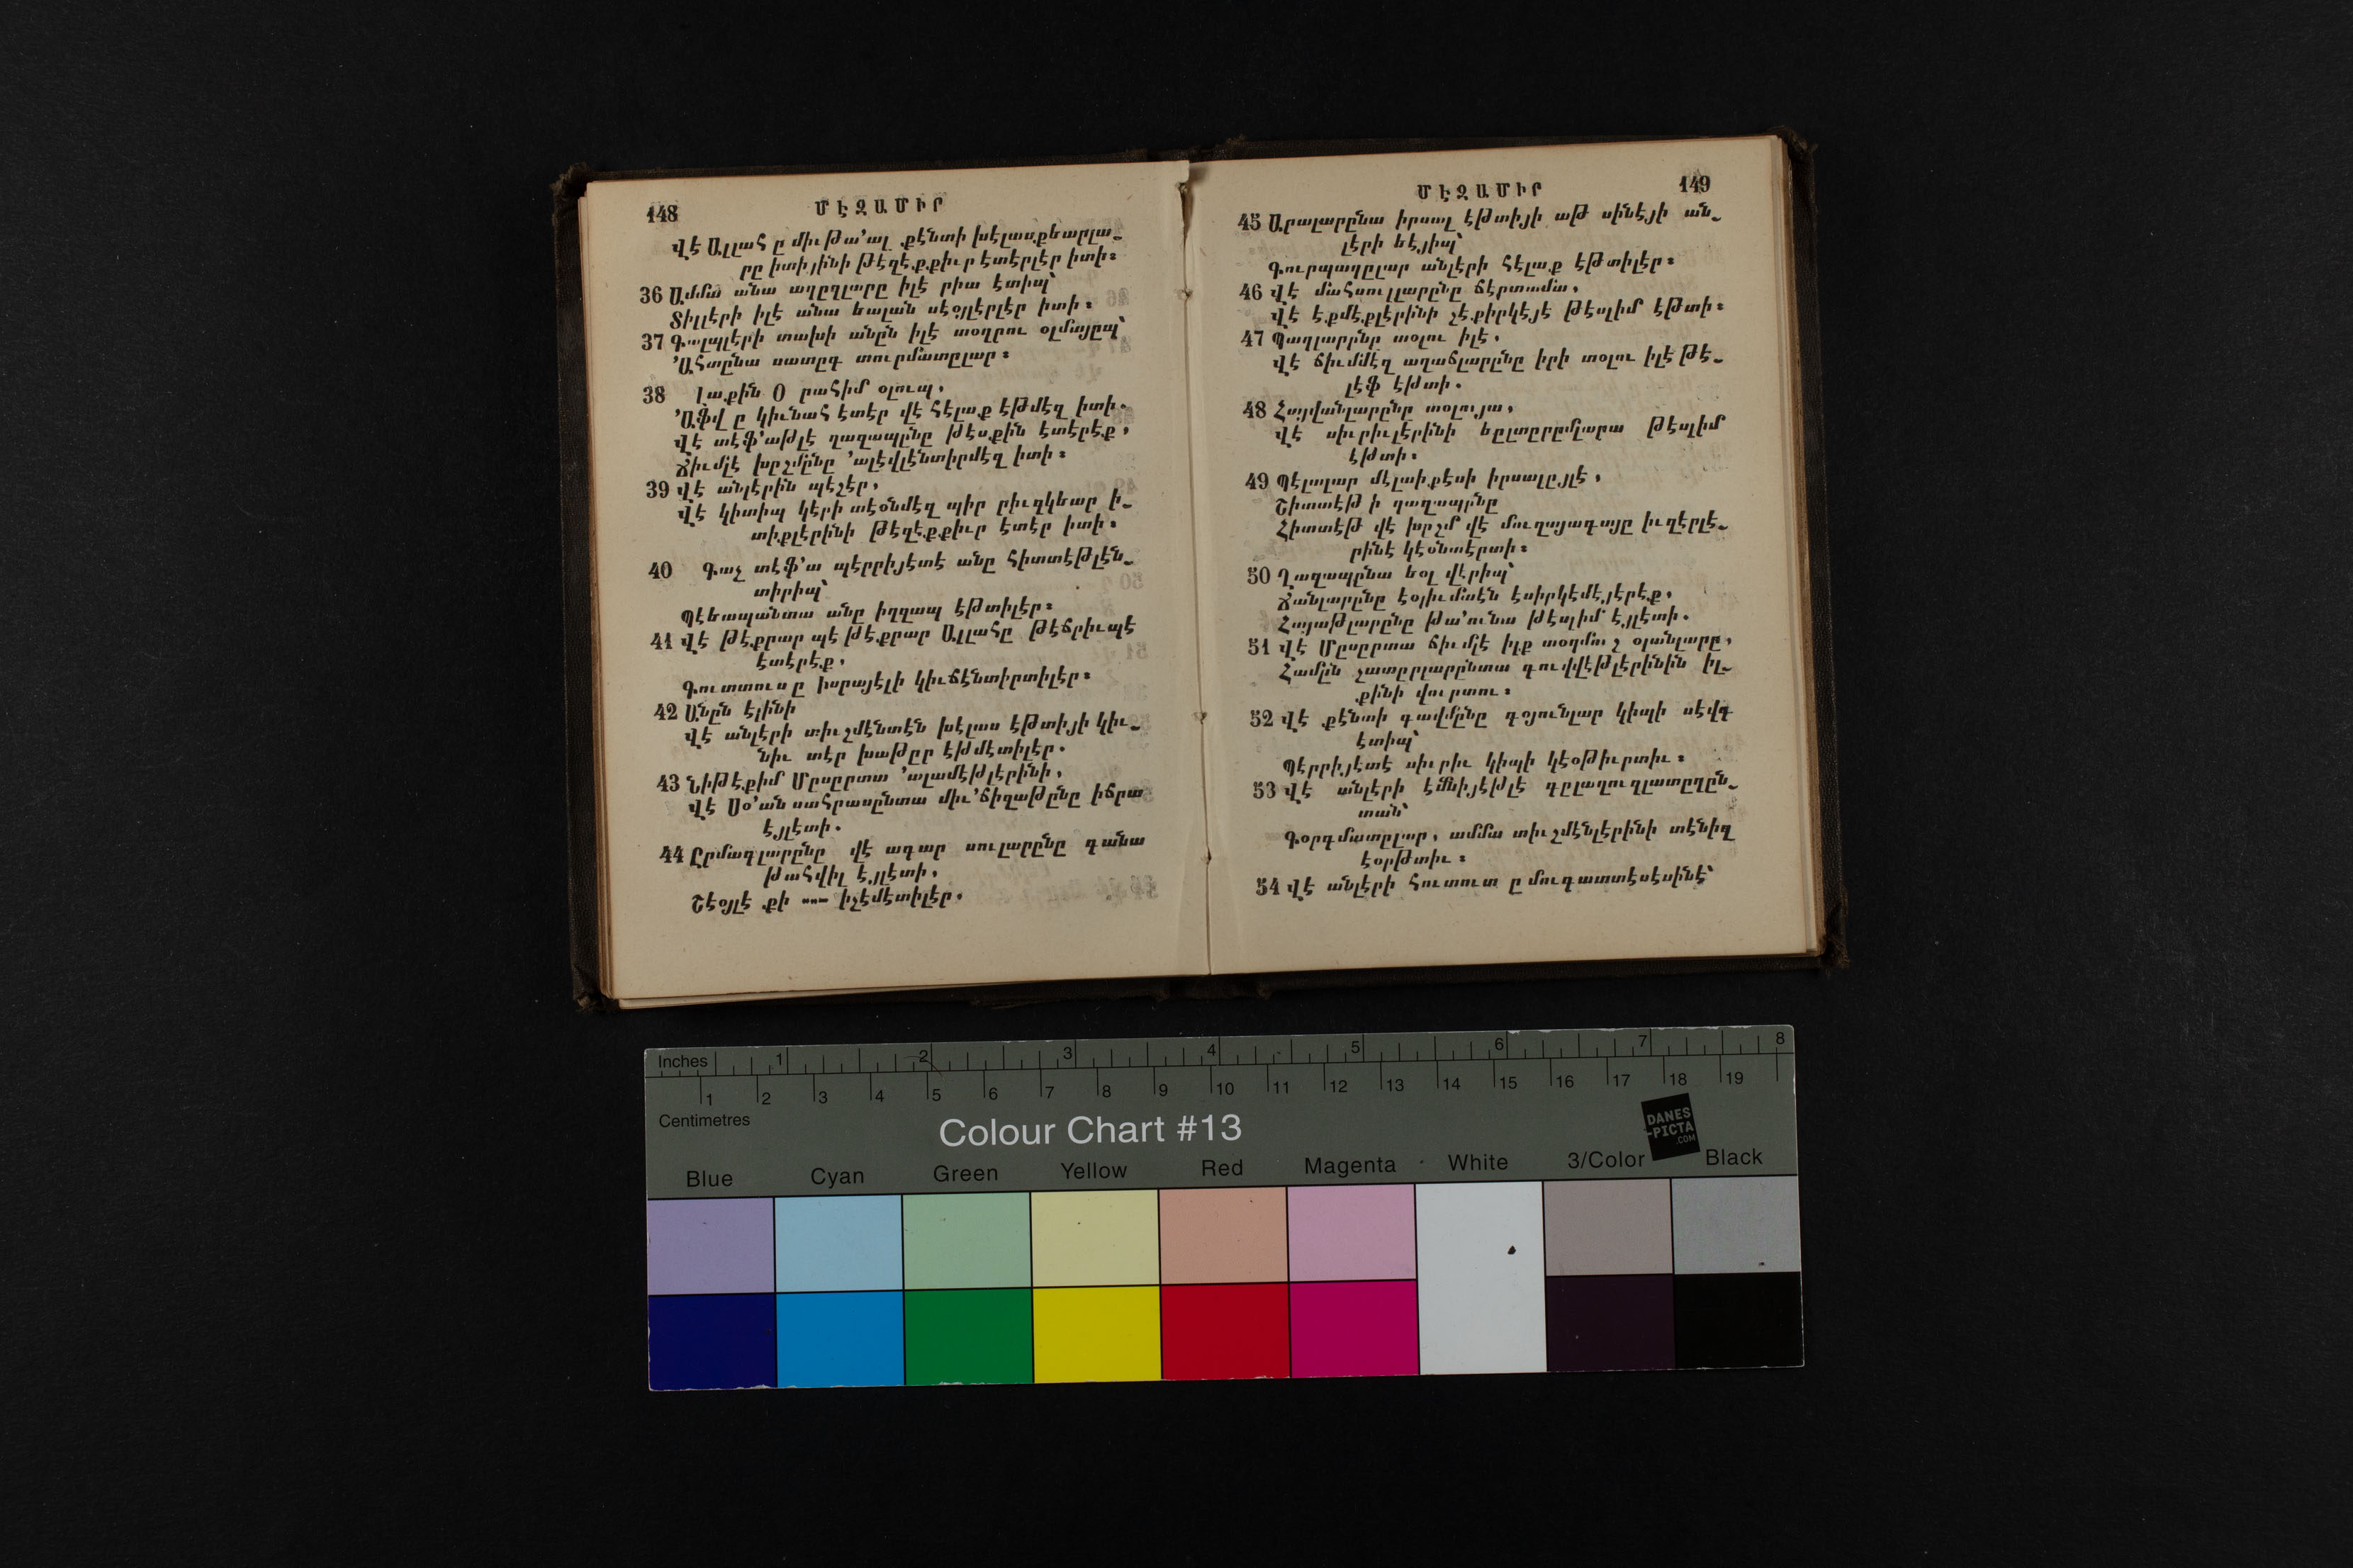 148 ՄԷԶԱՄԻՐ
Վէ Ալլահ ը միւթա՚ալ քէնտի խէլասքեարլա֊
րը իտիյինի թէզէքքիւր էտէրլէր իտի։
36 Ամմա անա աղըզլարը իլէ րիա էտիպ՝
Տիլլէրի իլէ անա եալան սէօյլէրլէր իտի։
37 Գալպլէրի տախի անըն իլէ տօղրու օլմայըպ՝
՚Ահտընա սատըգ տուրմատըլար։
38 Լաքին Օ րահիմ օլուպ,
՚Աֆվ ը կիւնահ էտէր վէ հէլաք էթմէզ իտի.
Վէ տէֆ՚աթլէ ղազապընը թէսքին էտէրէք,
Ճիւմլէ խըշմընը ՚ալէվլէնտիրմէզ իտի։
39 Վէ անլէրին պէշէր,
Վէ կիտիպ կէրի տէօնմէզ պիր րիւզկեար ի֊
տիքլէրինի թէզէքքիւր էտէր իտի։
40 Գաչ տէֆ՚ա պէրրիյէտէ անը հիտտէթլէն֊
տիրիպ՝
Պէեապանտա անը իղզապ էթտիլէր։
41 Վէ թէքրար պէ թէքրար Ալլահը թէճրիւպէ
էտէրէք,
Գուտտուս ը իսրայէլի կիւճէնտիրտիլէր։
42 Անըն էլինի
Վէ անլէրի տիւշմէնտէն խէլաս էթտիյի կիւ֊
նիւ տէր խաթըր էթմէտիլէր.
43 Նիթէքիմ Մըսըրտա ՚ալամէթլէրինի,
Վէ Սօ՚ան սահրասընտա միւ՚ճիզաթընը իճրա
էյլէտի.
44 Ըրմագլարընը վէ ագար սուլարընը գանա
թահվիլ էյլէտի,
Շէօյլէ քի ---- իչէմէտիլէր.
ՄԷԶԱՄԻՐ 149
45 Արալարընա իրսալ էթտիյի աթ սինէյի ան֊
լէրի եէյիպ՝
Գուրպաղըլար անլէրի հէլաք էթտիլէր։
46 Վէ մահսուլլարընը ճէրտամա,
Վէ էքմէքլէրինի չէքիրկէյէ թէսլիմ էթտի։
47 Պաղլարընը տօլու իլէ,
Վէ ճիւմմէզ աղաճլարընը իրի տօլու իլէ թէ֊
լէֆ էթտի.
48 Հայվանլարընը տօլույա,
Վէ սիւրիւլէրինի եըլտըրըմլարա թէսլիմ
էթտի։
49 Պէլալար մէլաիքէսի իրսալըյլէ,
Շիտտէթ ի ղազապընը
Հիտտէթ վէ խըշմ վէ մուզայագայը իւզէրլէ֊
րինէ կէօնտէրտի։
50 Ղազապընա եօլ վէրիպ՝
Ճանլարընը էօլիւմտէն էսիրկէմէյէրէք,
Հայաթլարընը թա՚ունա թէսլիմ էյլէտի.
51 Վէ Մըսըրտա ճիւմլէ իլք տօղմուշ օլանլարը,
Համըն չատըրլարընտա գուվվէթլէրինին իլ֊
քինի վուրտու։
52 Վէ քէնտի գավմընը գօյունլար կիպի սէվգ
էտիպ՝
Պէրրիյէտէ սիւրիւ կիպի կէօթիւրտիւ։
53 Վէ անլէրի էմնիյէթլէ գըլաղուզլատըղըն֊
տան՝
Գօրգմատըլար, ամմա տիւշմէնլէրինի տէնիզ
էօրթտիւ։
54 Վէ անլէրի հուտուտ ը մուգատտէսէսինէ՝
Inches 1 2 3 4 5 6 7 8
1 2 3 4 5 6 7 8 9 10 11 12 13 14 15 16 17 18 19
Centimetres
Colour Chart #13
DANES
-PICTA
.COM
Blue Cyan Green Yellow Red Magenta White 3/Color Black